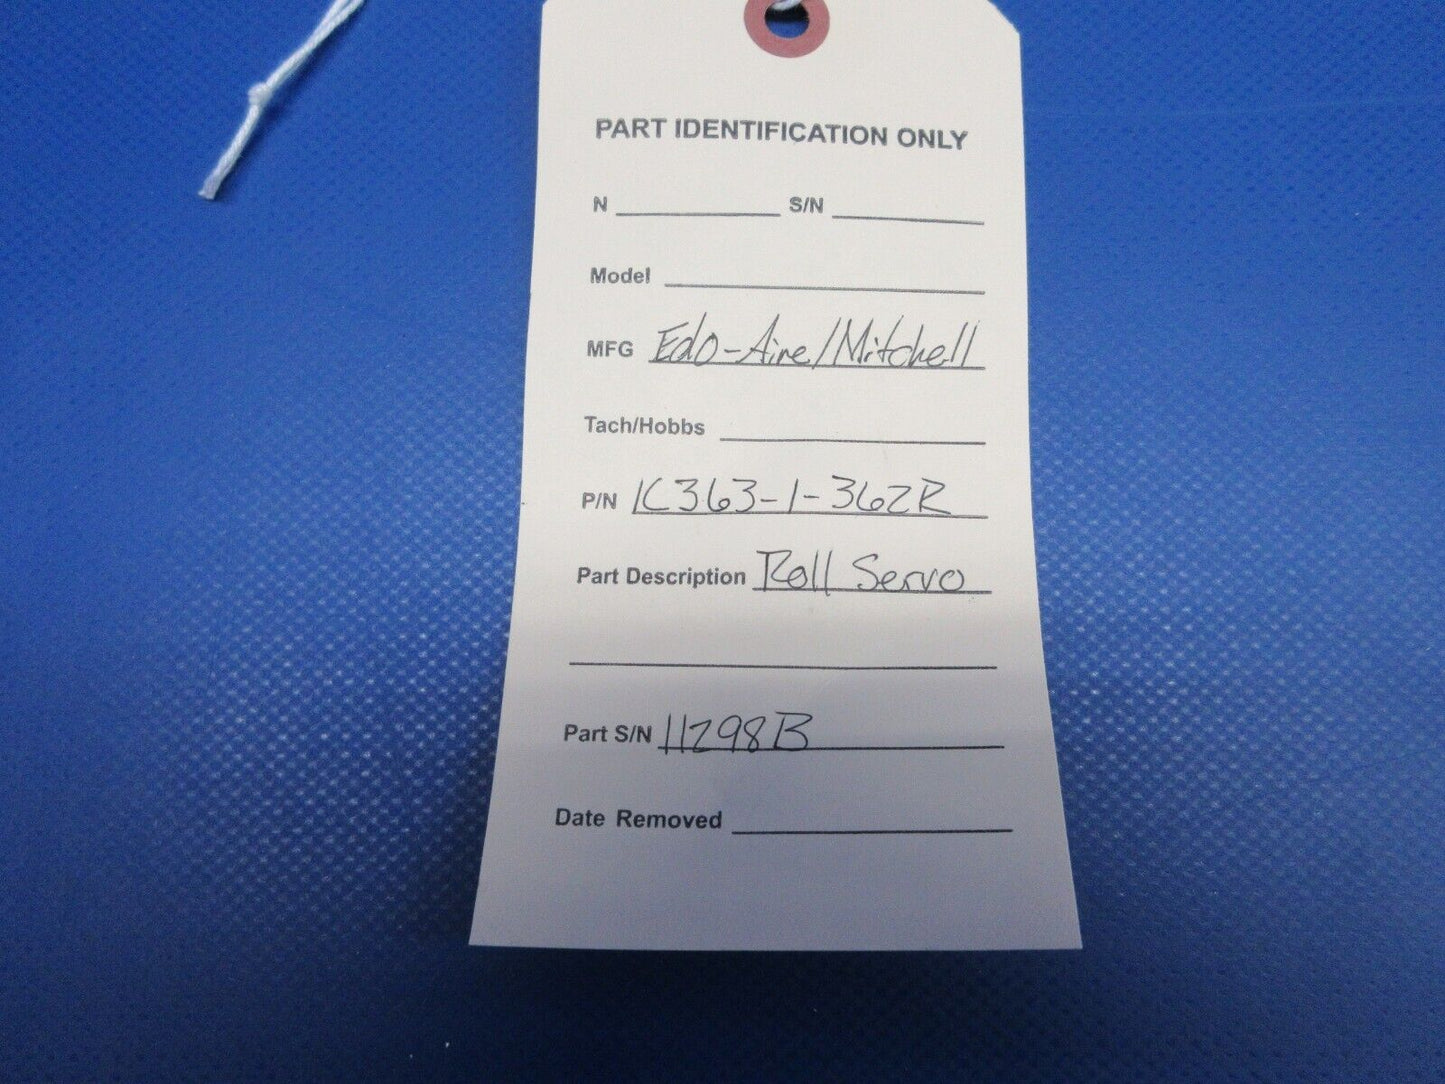 PART IDENTIFICATION ONLY
N S/N
Model
MFG Edo-Aire/Mitchell
Tach/Hobbs
P/N 1C363-1-362R
Part Description Roll Servo
Part S/N 11298B
Date Removed